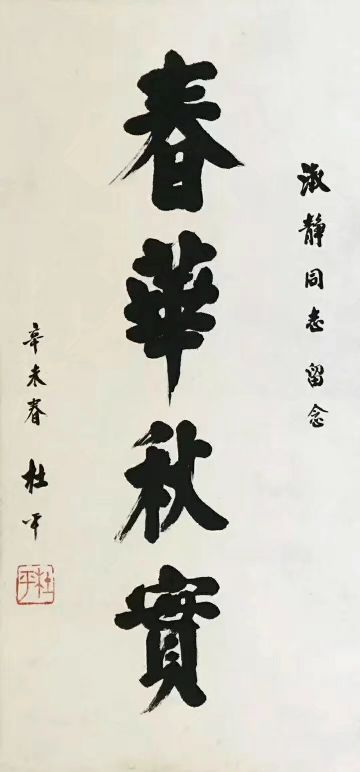 淑静同志留念
春華秋實
辛未春
杜平
杜平